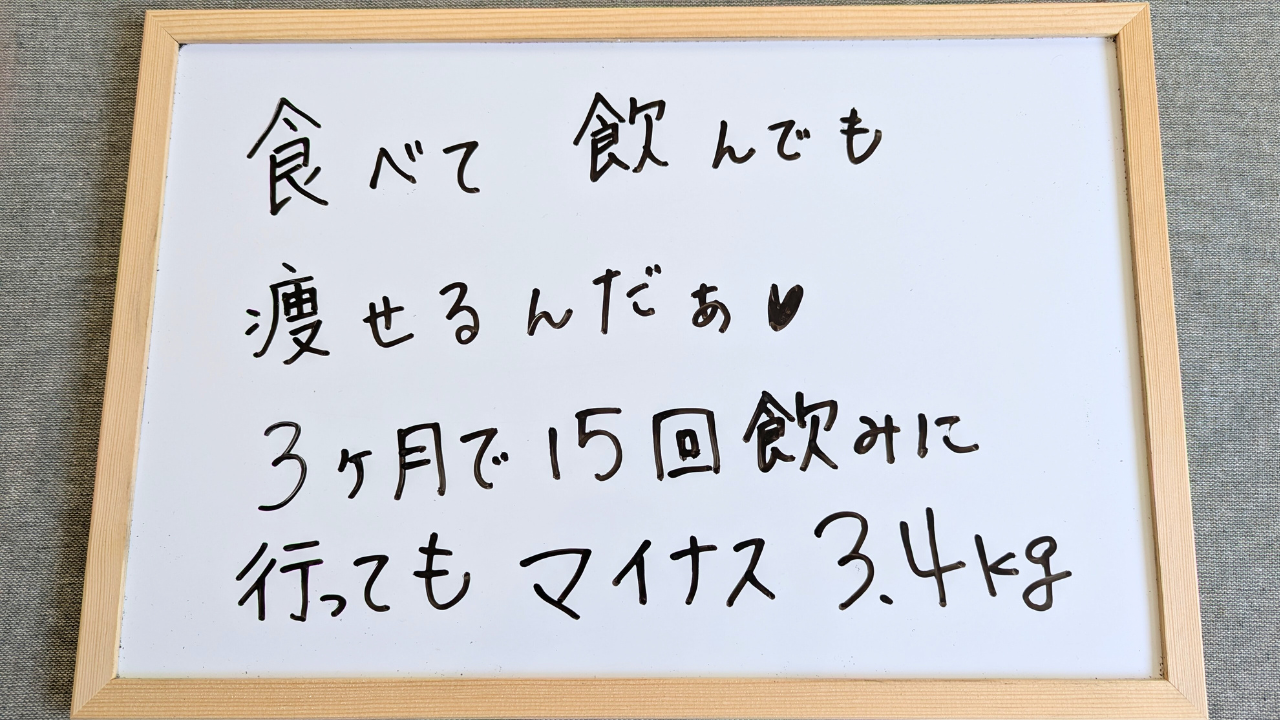 食べて 飲んでも
痩せるんだぁ♥
3ヶ月で15回飲みに
行ってもマイナス3.4kg